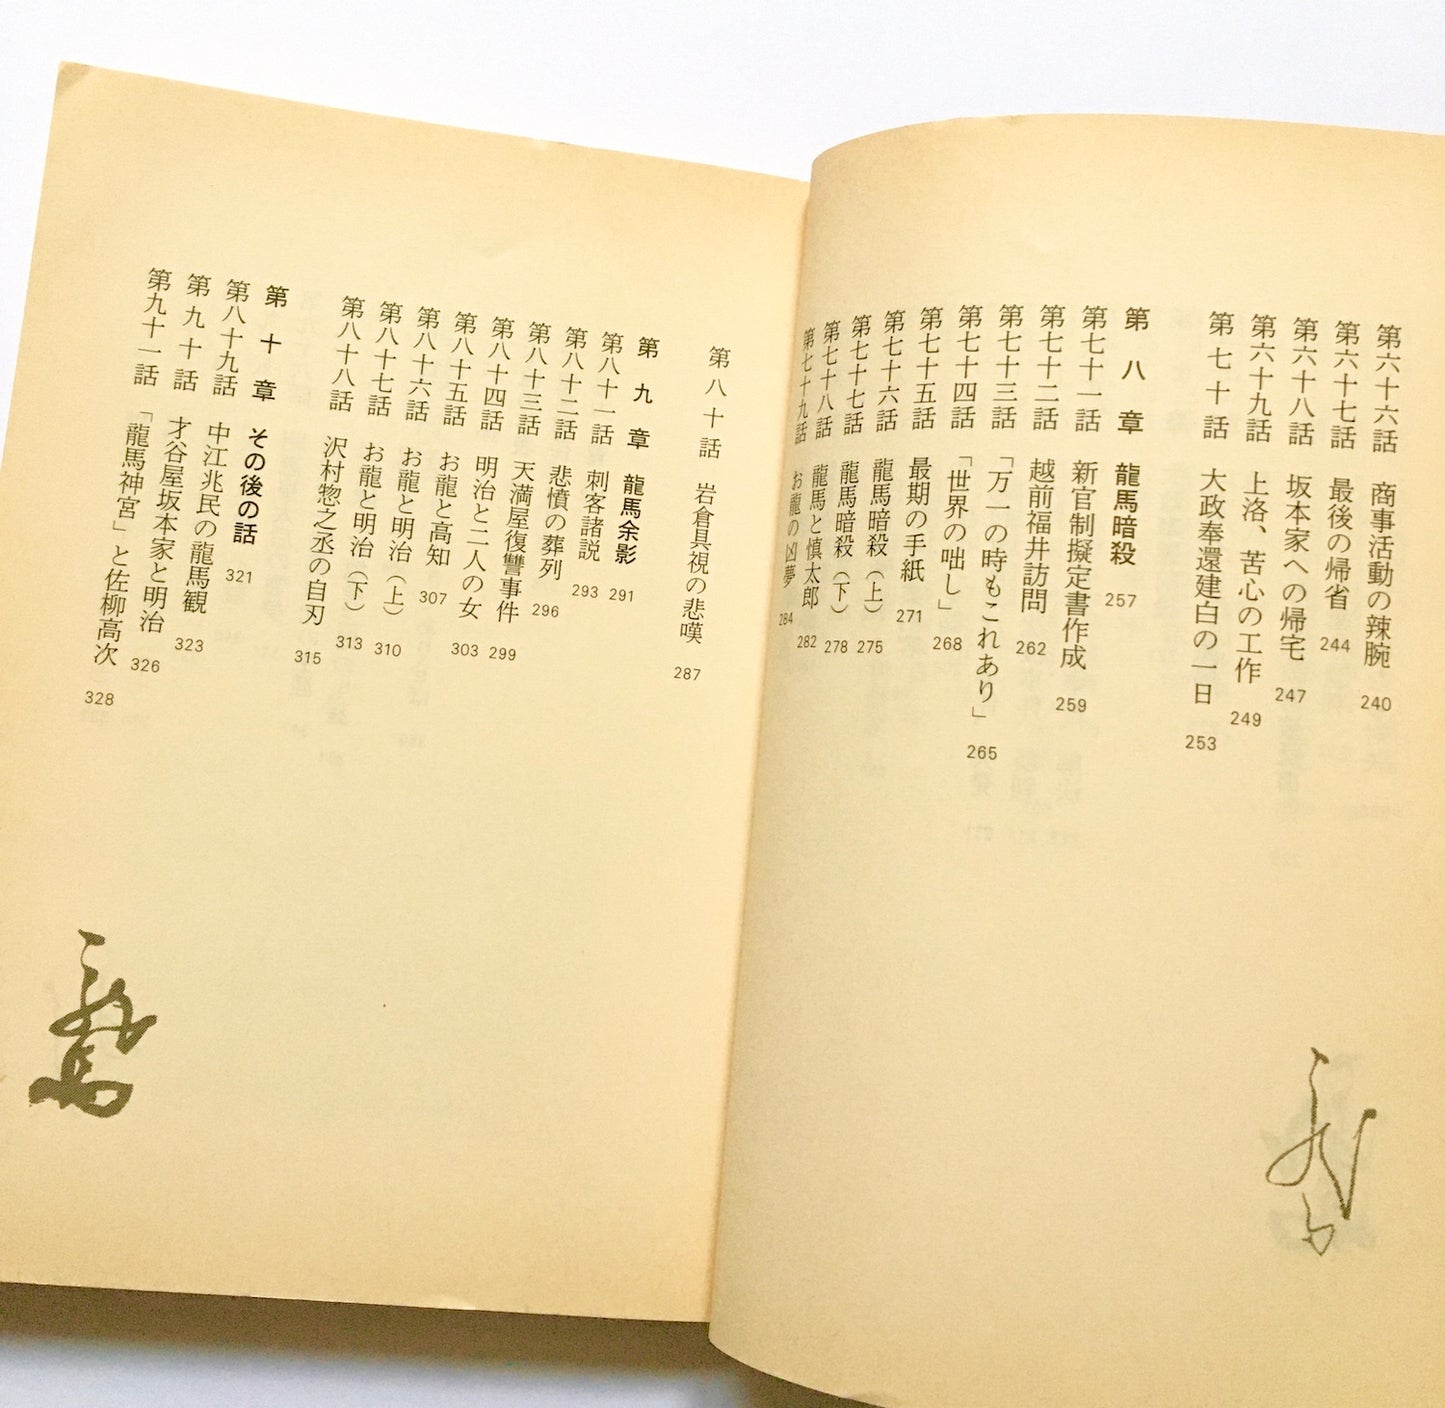 第六十六話　商事活動の辣腕　240
第六十七話　最後の帰省　244
第六十八話　坂本家への帰宅　247
第六十九話　上洛、苦心の工作　249
第七十話　大政奉還建白の一日　253
第八章　龍馬暗殺　257
第七十一話　新官制擬定書作成　259
第七十二話　越前福井訪問　262
第七十三話　「万一の時もこれあり」　265
第七十四話　「世界の咄し」　268
第七十五話　最期の手紙　271
第七十六話　龍馬暗殺（上）　275
第七十七話　龍馬暗殺（下）　278
第七十八話　龍馬と慎太郎　282
第七十九話　お龍の凶夢　284
第八十話　岩倉具視の悲嘆　287
第九章　龍馬余影　291
第八十一話　刺客諸説　293
第八十二話　悲憤の葬列　296
第八十三話　天満屋復讐事件　299
第八十四話　明治と二人の女　303
第八十五話　お龍と高知　307
第八十六話　お龍と明治（上）　310
第八十七話　お龍と明治（下）　313
第八十八話　沢村惣之丞の自刃　315
第十章　その後の話　321
第八十九話　中江兆民の龍馬観　323
第九十話　才谷屋坂本家と明治　326
第九十一話　「龍馬神宮」と佐柳高次　328